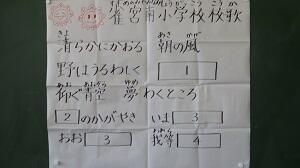 雀宮南小学校校歌
清らかにかおる 朝の風
野はうるわしく 1
仰ぐ青空 夢 わくところ
2 のかがやき いま 3
おお 3 我等 4